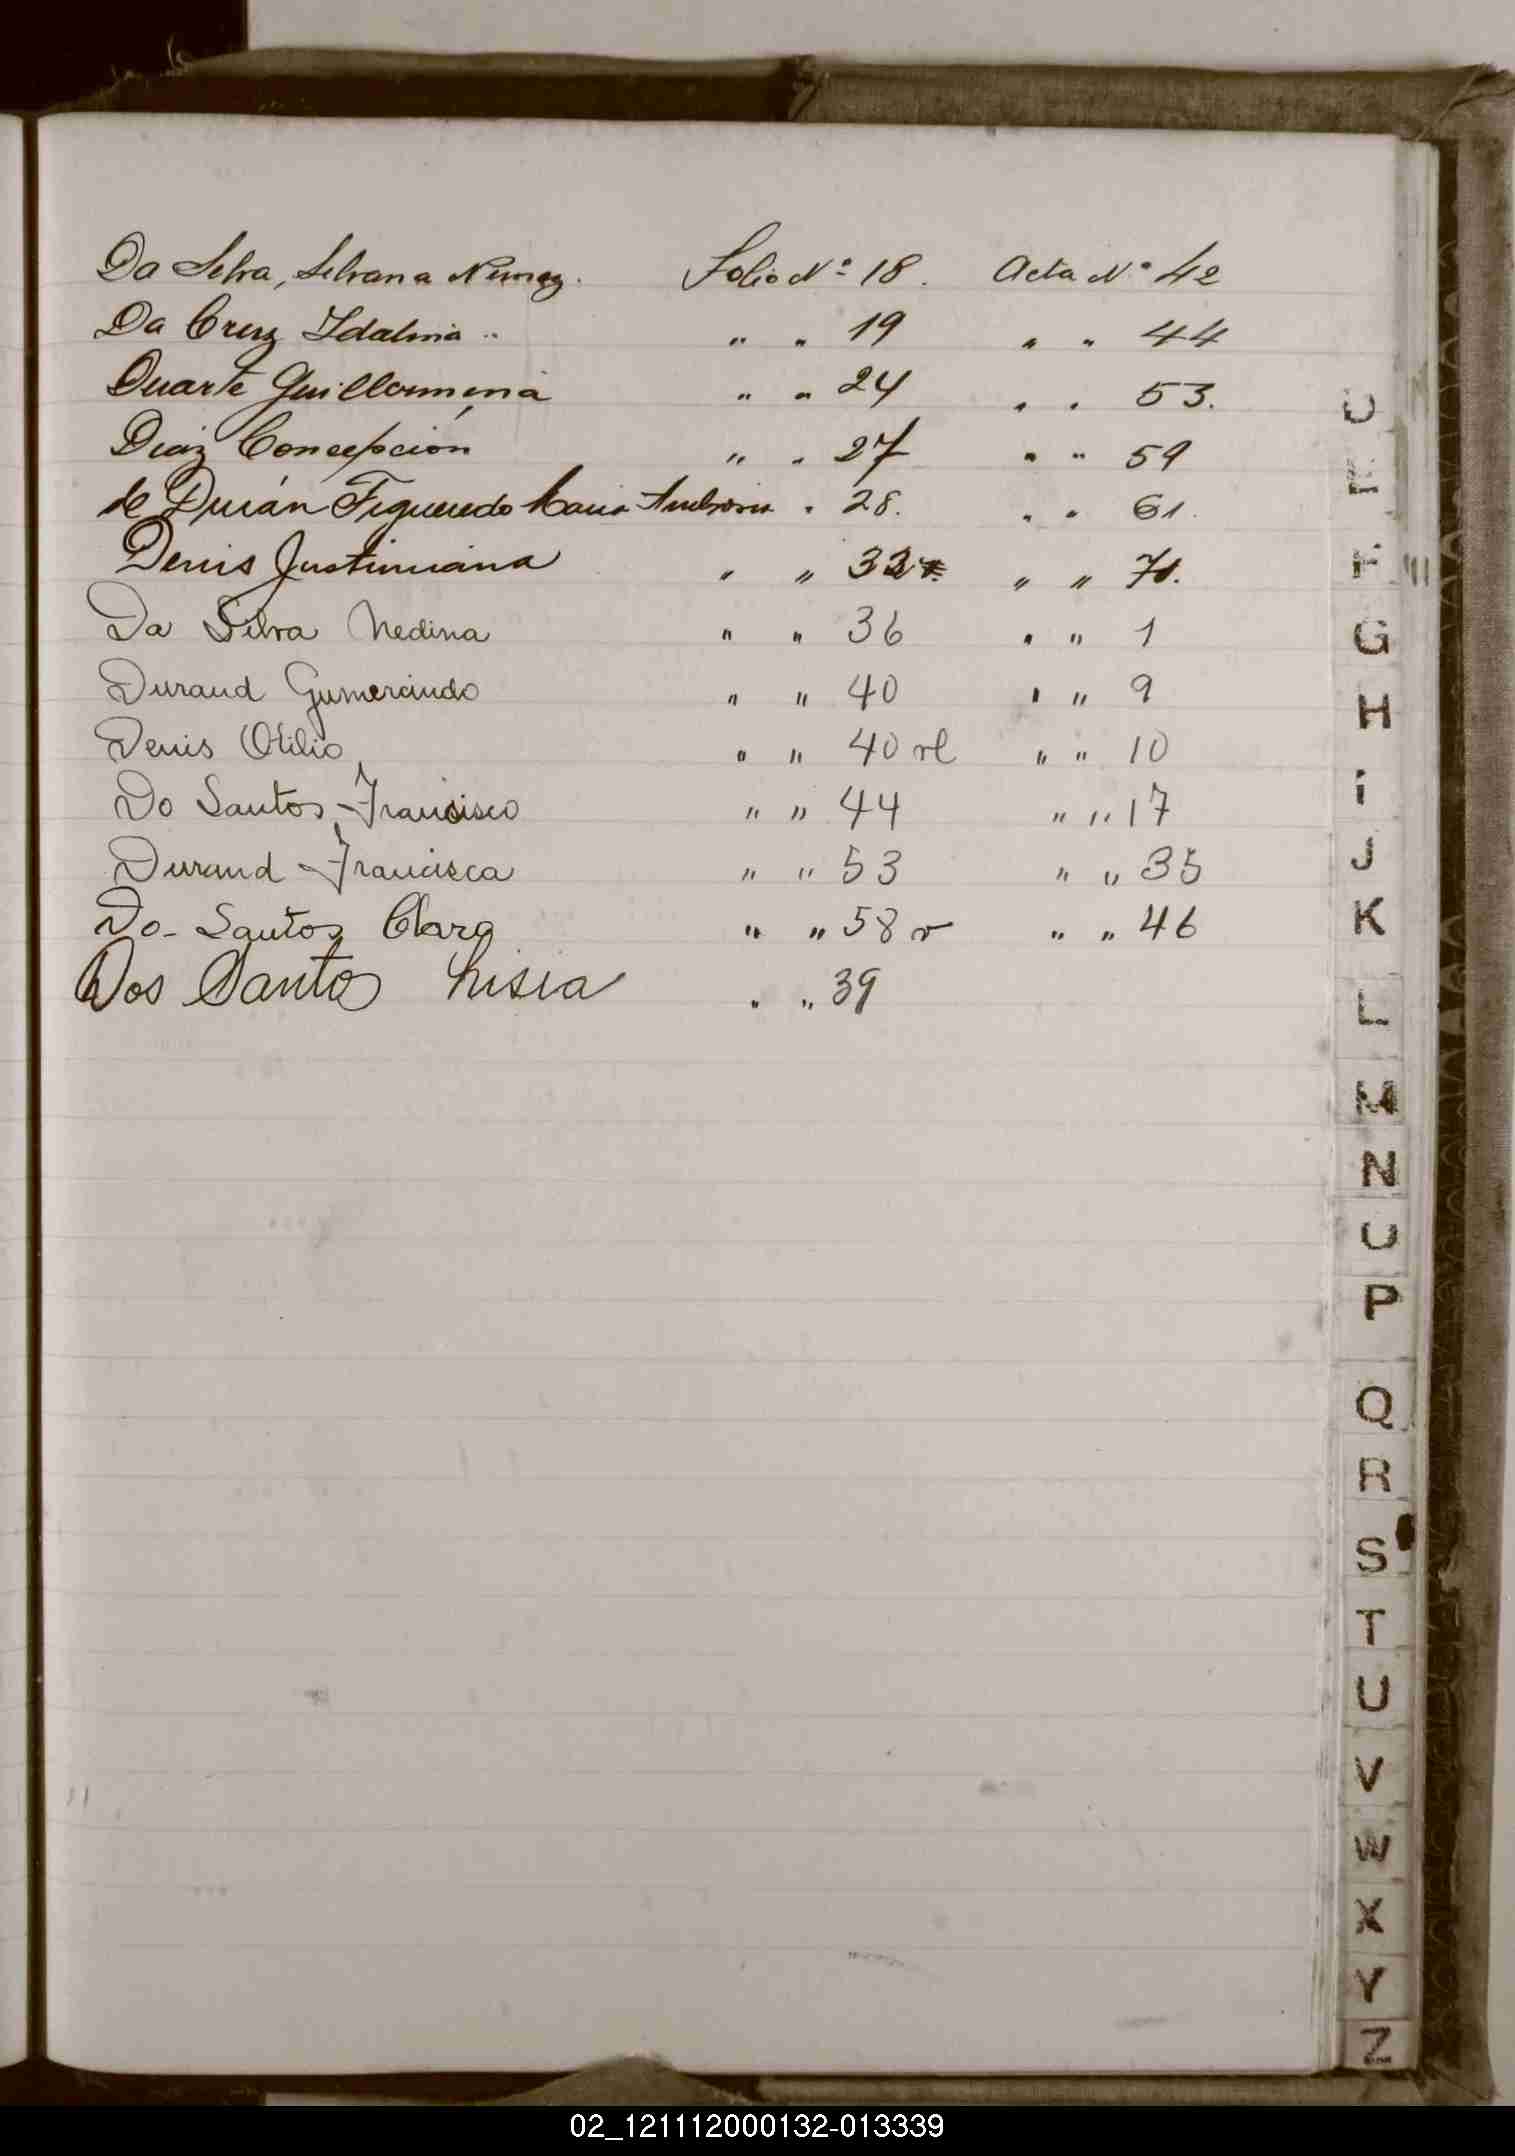 Da Silva, Silvana Nuñez. Folio Nº 18. Acta Nº 42
Da Cruz Idalina " " 19 " " 44
Duarte Guillermina " " 24 " " 53.
Diaz Concepción " " 27 " " 59
de Durán Figueredo Maria Ambrosia " 28. " " 61.
Denis Justiniana " " 33 " " 71.
Da Silva Medina " " 36 " " 1
Durand Gumercindo " " 40 " " 9
Denis Otilio " " 40 vl " " 10
Do Santos Francisco " " 44 " " 17
Durand Francisca " " 53 " " 35
Do- Santos Clara " " 58 v " " 46
Dos Santos Lisia " " 39
D
E
F
G
H
i
J
K
L
M
N
O
P
Q
R
S
T
U
V
W
X
Y
Z
02_121112000132-013339